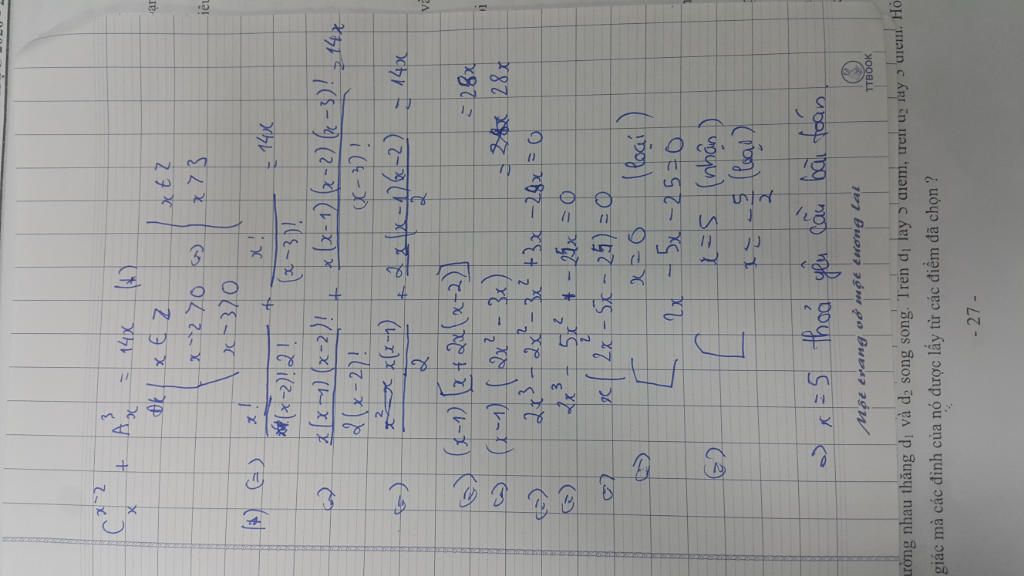 C_x^{x-2} + A_x^3 = 14x (*)
đk { x ∈ Z
x-2 ≥ 0 ⇔ { x ∈ Z
x-3 ≥ 0 x ≥ 3
(*) (=) x!/((x-2)!.2!) + x!/(x-3)! = 14x
⇔ x(x-1)(x-2)!/(2(x-2)!) + x(x-1)(x-2)(x-3)!/(x-3)! = 14x
(=) x(x-1)/2 + 2x(x-1)(x-2)/2 = 14x
(=) (x-1)[x+2x(x-2)] = 28x
⇔ (x-1)(2x² - 3x) = 28x
(=) 2x³ - 2x² - 3x² + 3x - 28x = 0
(=) 2x³ - 5x² - 25x = 0
⇔ x(2x² - 5x - 25) = 0
(=) [ x = 0 (loại)
2x² - 5x - 25 = 0
(=) [ x = 5 (nhận)
x = -5/2 (loại)
⇒ x = 5 thoả yêu cầu bài toán.
Một trang vở một tương lai
TTBOOK
nhau thẳng d₁ và d₂ song song. Trên d₁ lấy 5 điểm, trên d₂ lấy 3 điểm. Hỏ
giác mà các đỉnh của nó được lấy từ các điểm đã chọn ?
- 27 -